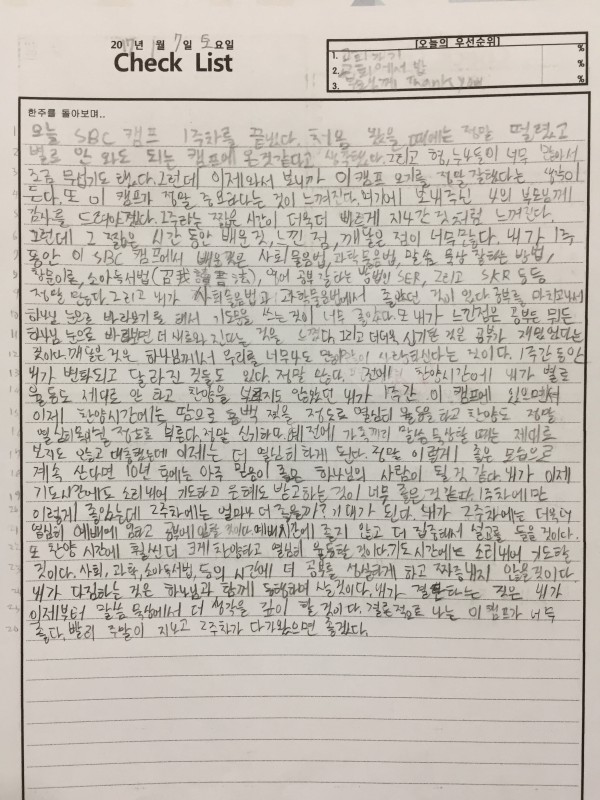 2017년 1월 7일 토요일
Check List
[오늘의 우선순위]
1. %
2. %
3. %
한주를 돌아보며..
1 오늘 SBC 캠프 1주차를 끝냈다. 처음 왔을 때에는 정말 떨렸고
2 별로 안 와도 되는 캠프에 온것같다고 생각했다. 그리고 형, 누나들이 너무 많아서
3 조금 무섭기도 했다. 그런데 이제와서 보니까 이캠프 오기를 정말 잘했다는 생각이
4 든다. 또 이 캠프가 정말 중요하다는 것이 느껴진다. 여기에 보내주신 부모님께
5 감사를 드려야겠다. 1주라는 짧은 시간이 더욱더 빠르게 지나간 것처럼 느껴진다.
6 그런데 그 짧은 시간 동안 배운것, 느낀 점, 깨달은 점이 너무많다. 내가 1주
7 동안 이 SBC 캠프에서 배운것은 사회물음법, 과학물음법, 말씀 묵상 잘하는 방법,
8 소아독서법(召我讀書法), 영어 공부 잘하는 방법인 SER, 그리고 SAR 등등
9 정말 많다. 그리고 내가 사회물음법과 과학물음법에서 좋았던 것이 있다 공부를 마치고나서
10 하나님 눈으로 바라보기를 해서 기도문을 쓰는것이 너무 좋았다. 또 내가 느낀점은 공부든 뭐든
11 하나님 눈으로 바라보면 더 새로워 진다는 것을 느꼈다. 그리고 더더욱 신기한 것은 공부가 재밌었다는
12 것이다. 깨달은 것은 하나님께서 우리를 너무나도 많이 사랑하신다는 것이다. 1주간 동안
13 내가 변화되고 달라진 것들도 있다. 정말 많다. 전에 찬양시간에 내가 별로
14 율동도 제대로 안 하고 찬양을 부르지도 않았던 내가 1주간 이 캠프에 있으면서
15 이제 찬양시간에는 땀으로 흠뻑 젖을 정도로 열심히 율동을 하고 찬양도 정말
16 열심히 정도로 부른다. 정말 신기하다. 예전에 가족끼리 말씀 묵상할 때는 제대로
17 보지도 않고 대충했는데 이제는 더 열심히 하게 된다. 정말 이렇게 좋은 모습으로
18 계속 산다면 10년 후에는 아주 믿음이 좋은 하나님의 사람이 될것 같다. 내가 이제
19 기도시간에도 소리내어 기도하고 은혜도 받고하는 것이 너무 좋은것 같다. 1주차에만
20 이렇게 좋았는데 2주차에는 얼마나 더 좋을까? 기대가 된다. 내가 2주차에는 더욱더
21 열심히 예배에 임하고 공부에 임할 것이다. 예배시간에 졸지 않고 더 집중해서 설교를 들을 것이다.
22 또 찬양 시간에 훨씬 더 크게 찬양하고 열심히 율동할 것이다. 기도시간에는 소리내어 기도할
23 것이다. 사회, 과학, 소아독서법, 등의 시간에 더 공부를 성실하게 하고 짜증내지 않을것이다.
24 내가 다짐하는 것은 하나님과 함께 동행하며 살 것이다. 내가 결단하는 것은 내가
25 이제부터 말씀 묵상에서 더 생각을 깊이 할 것이다. 결론적으로 나는 이 캠프가 너무
26 좋다. 빨리 주말이 지나고 2주차가 다가왔으면 좋겠다.